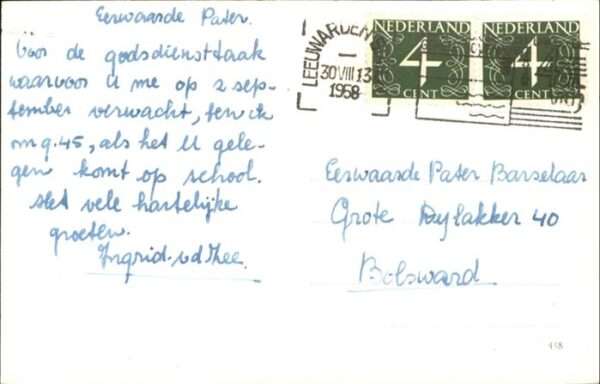 Eerwaarde Pater.
Voor de godsdiensttaak
waarvoor U me op 2 sep-
tember verwacht, ben ik
om 9.45, als het U gele-
gen komt op school.
Met vele hartelijke
groeten.
Ingrid v.d.
LEEUWARDEN
30 VIII 13
1958
NEDERLAND
4
CENT
NEDERLAND
4
CENT
Eerwaarde Pater Barselaar
Grote Dylakker 40
Bolsward